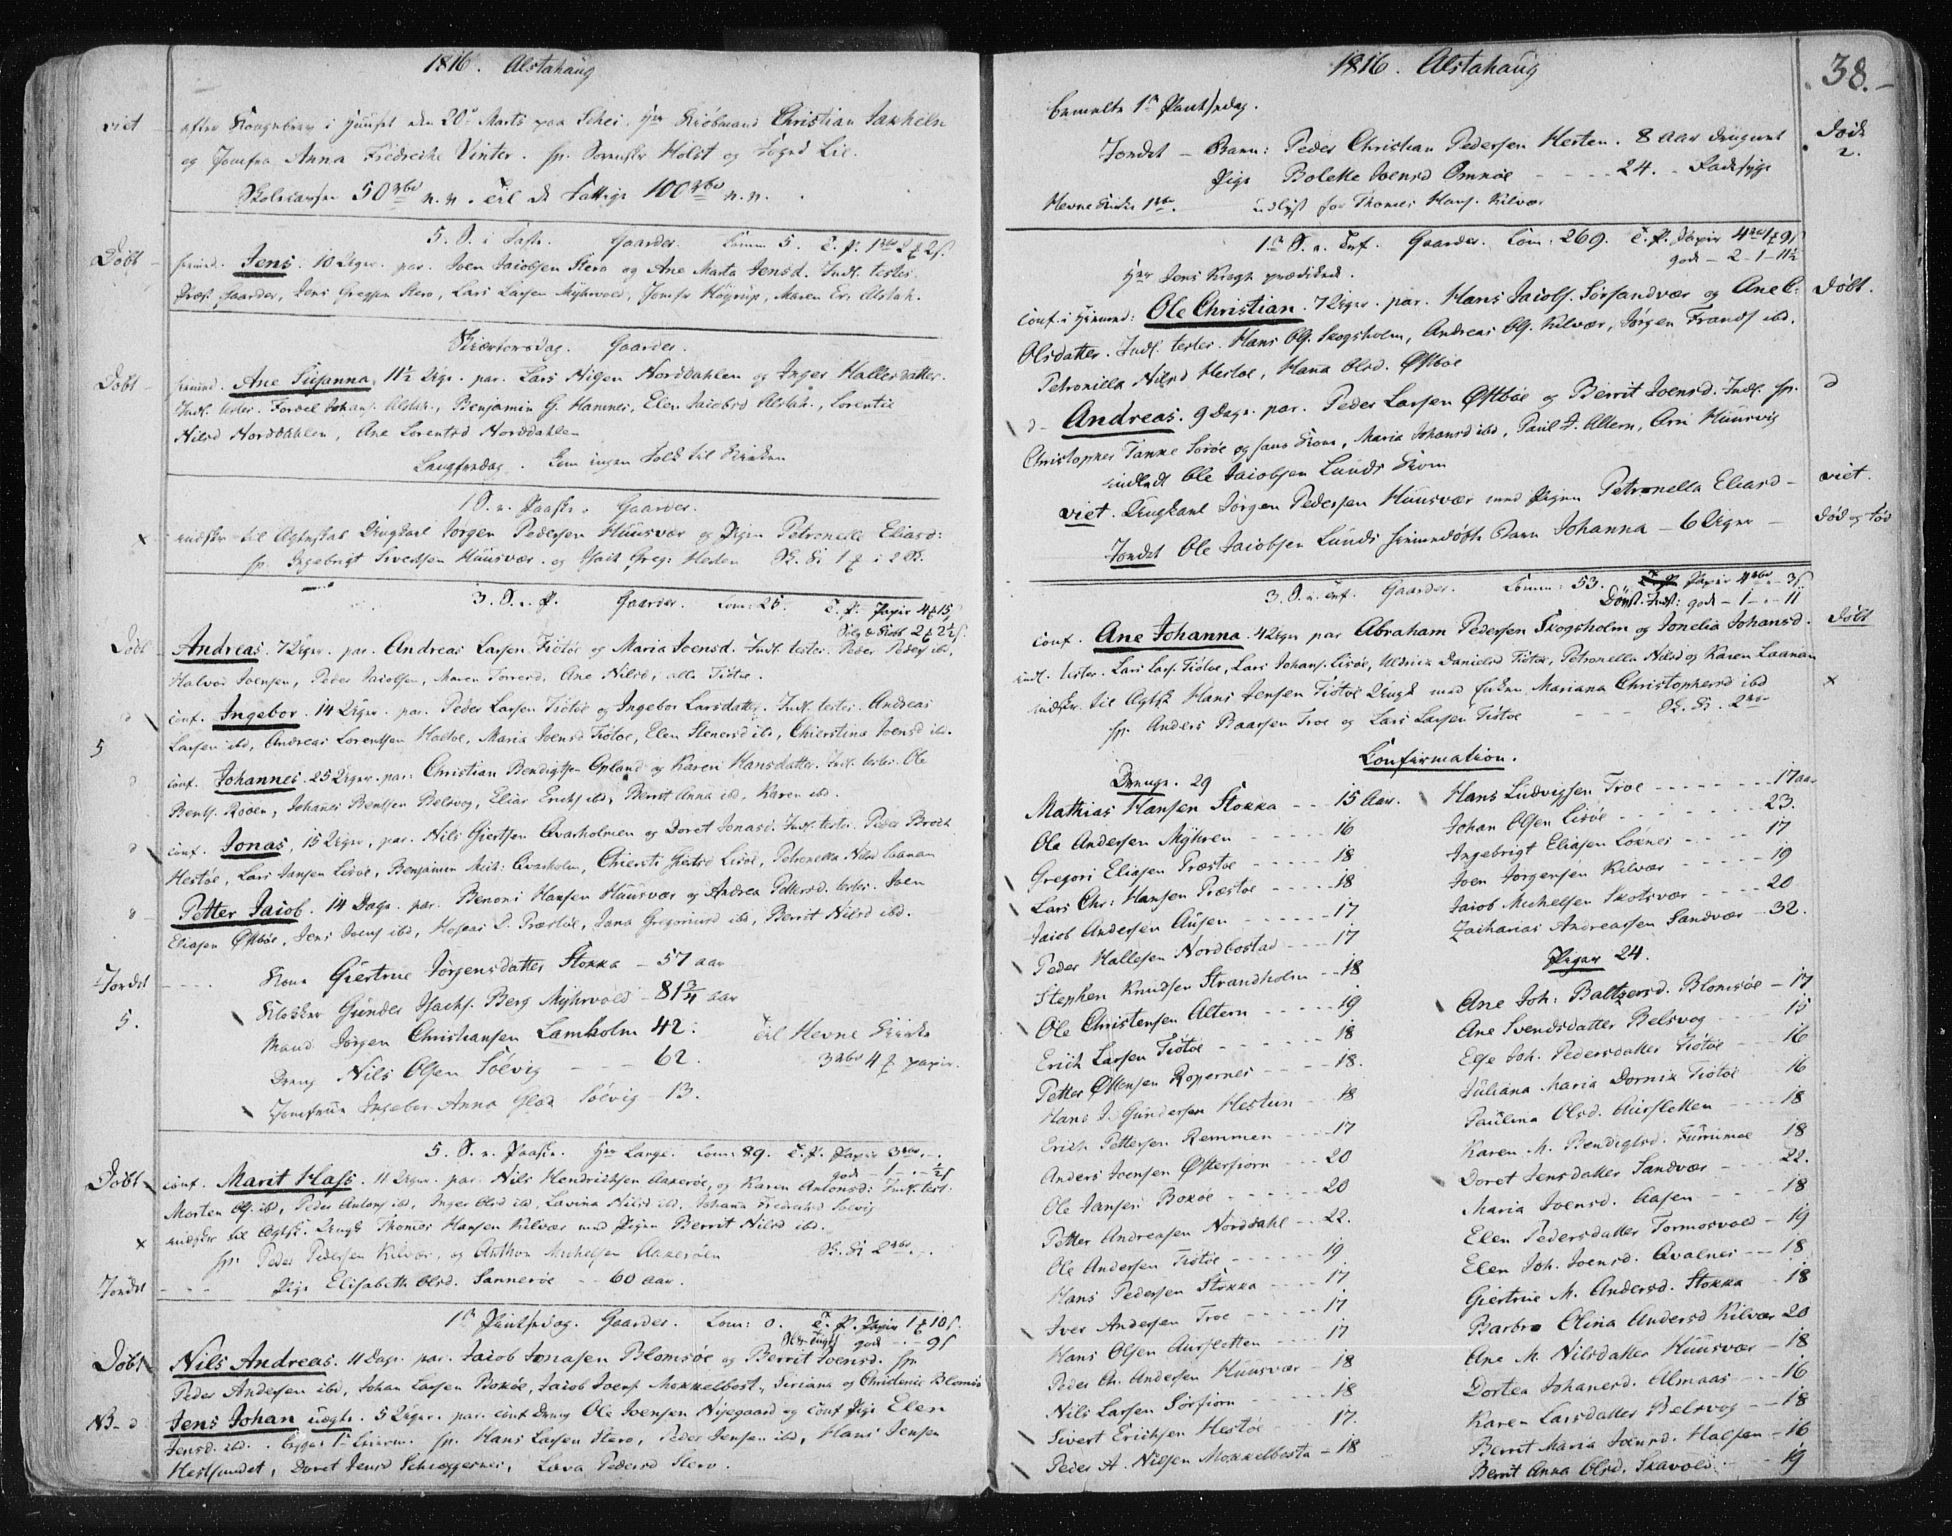 1816. Alstahaug
viet - efter Kongebrev i Huuset den 20de Marts paa Schei. Hr Kiøbmand Christian Jakheln
og Jomfru Anna Fredricke Vinter. sp. Holst og Foged Lie.
50 rbd n.v. Til de Fattige 100 rbd n.v.
5. S. i Faste. Gaarder. Comm 5.
Døbt - hiemd. Jens. 10 Uger. par. Joen Jacobsen Stero og Ane Marta Jensd. Indl. testes.
Gaarder, Jens Stero, Lars Larsen Myhrvold, Jomfr Høyrup, Maren Alstah.
Skiertorsdag. Gaarder.
Døbt - hiemd. Ane Susanna, 11½ Uger. par. Lars Nilsen Norddahlen og Inger Hallesdatter.
Indl. testes. Johans. Alstah., Benjamin G. Hamnes, Elen Jacobsd Alstah., Lorentse
Nilsd Norddahlen, Ane Lorentsd Norddahlen
Langfredag. Kom ingen Folk til Kirken
1 S. e. Paaske. Gaarder.
x indskr. til Ægteskab Ungkarl Jørgen Pedersen Huusvær og Pigen Petronella Eliasd:
sp. Ingebrigt Sivertsen Huusvær og Isach Greg: Heden
3. S. e. P. Gaarder. Com: 25. T. P. Papir 4 15
Døbt Andreas. 7 Uger. par. Andreas Larsen Tiøtøe og Maria Joensd. Indl. testes. Peder Peders ibd,
Halvor Joensen, Peder Jacobsen, Maren Torersd, Ane Nilsd, alle Tiøtøe.
d conf. Ingebor. 14 Uger. par. Peder Larsen Tiøtøe og Ingebor Larsdatter. Indl. testes. Andreas
5 Larsen ibd, Andreas Lorentsen Holtøe, Maria Joensd Tiøtøe, Elen Stenersd ibd, Chierstina Joensd ibd.
d conf. Johannes. 25 Uger. par: Christian Bendigtsen Opland og Karen Hansdatter. Indl. testes. Ole
Bents. Roden, Johanes Bentsen Belsvog, Elias Erichs ibd, Berrit Anna ibd, Karen ibd.
d conf. Jonas, 15 Uger, par. Nils Giertsen Qvarholmen og Doret Jonasd. Indl. testes. Peder Broch
Hestøe, Lars Jansen Lisøe, Benjamin Mich: Qvarholm, Chiersti Giertsd Lisøe, Petronella Nilsd Laanan
8 - Petter Jacob. 14 Dage. par. Benoni Hansen Huusvær og Andrea Pettersd. testes. Joen
Eliasen Østbøe, Jens Joens ibd, Hoseas P. Præstøe, Jana Gregoriusd ibd, Berrit Nilsd ibd.
Jordet - Kone Giertrue Jørgensdatter Stokka - 57 aar
5. Klokker Gunder Isachs. Berg Myhrvold - 81¾ aar
Mand Jørgen Christiansen Lamholm 42: Til Hevne Kirke
Dreng Nils Olsen Sølvig - - 62. 3 rbd 4 papir.
Jomfrue Ingebor Anna Glad Sølvig - 13.
5. S. e. Paaske. Hr Lange. Com: 89. T. P. Papir 3 rbd
god - 1 - - ½
Døbt conf. Marit Hass. 11 Uger. par. Nils Hendrichsen Aakerøe, og Karen Antonsd: Indl. test.
Morten Ols ibd, Peder Antons ibd, Inger Olsd ibd, Lavina Nilsd ibd, Johana Fredriksd Sølvig
x indskr til Ægtsk. Ungk Thomas Hansen Kilvær med Pigen Berrit Nilsd ibd.
sp. Peder Pedersen Kilvær, og Anthon Michelsen Aakerøen
Jordet - Pige Elisabeth Olsd. Sannerøe - - 60 aar.
1ste Pintsedag. Gaarder. Com: 0. T. P. Papir 1 10
god - - 9
Døbt Nils Andreas. 11 Dage. par. Jacob Jonasen Blomsøe og Berrit Joensd. sp.
Peder Andersen ibd, Johan Larsen Bokøe, Jacob Joens Mokkelbost, Siriana og Christense Blomsø
NB. d Jens Johan uægte. 5 Uger. par. conf. Dreng Ole Joensen Nyegaard og conf. Pige Elen
Jensd. ibd. begges 1te sp. Hans Larsen Stero, Peder Jensen ibd, Hans Jensen
Hestsundet, Doret Jensd Schieggesnes, Lava Pedersd Stero.
1816. Alstahaug 38.
bemelte 1te Pintsedag.
Jordet - Barn: Peder Christian Pedersen Hesten. 8 Aar druknet Døde
Pige Bolette Joensd Omnøe - - - 24. - Landesyge 2.
Hevne Kirke udlyst for Thomas Hans. Kilvær
1te S. e. Tref. Gaarder. Com: 269. T. P. Papir 4
god - 2 - 1 - 11½
Hr Jens Kragh prædiked.
conf. i Hiemd: Ole Christian. 7 Uger. par. Hans Jacobs. Sørsandvær og Ane C: Døbt.
Olsdatter. Indl. testes. Hans Ols. Skogsholm, Andreas Ols. Kilvær, Jørgen Frands ibd.
Petronilla Nilsd Hestøe, Hana Olsd. Østbøe
d - Andreas. 9 Dage. par. Peder Larsen Østbøe og Berrit Joensd. Indl. sp. d
Christopher Tanke Sørøe og hans Kone, Maria Johansd ibd, Paul J. Altern, Arn Huusvig
indledt Ole Jacobsen Lunds Kone
viet. Ungkarl Jørgen Pedersen Huusvær med Pigen Petronella Eliasd - viet.
Jordet Ole Jacobsen Lunds hiemmedøbte Barn Johanna - 6 Uger - død og fød
3. S. e. Tref. Gaarder. Comm: 53. Papir 4 rbd - 3
god - 1 - - 11
conf. Ane Johanna. 4 Uger par Abraham Pedersen Skogsholm og Jonelia Johansd. Døbt
indl. testes. Lars Lars. Tiøtøe, Lars Johans. Lisøe, Uldrica Danielsd Tiøtøe, Petronella Nilsd og Karen Laanan
indskr. til Ægtsk Hans Jensen Tiøtøe Ungk med Enken Mariana Christophersd ibd x
sp. Anders Baarsen Troe og Lars Larsen Tiøtøe
Confirmation.
Drenge. 29
Mathias Hansen Stokka - - 15 Aar.
Ole Andersen Myhren - - - 16
Gregori Eliasen Præstøe - - - 18
Lars Chr: Hansen Præstøe - - - 18
Jacob Andersen Ausen - - - 17
Peder Hallesen Nordbostad - - - 17
Stephen Knudsen Strandholm - - 18
Ole Christensen Altern - - - 19
Erich Larsen Tiøtøe - - - 18
Petter Østensen Ropernes - - - 18.
Hans J. Gundersen Hestun - - 18
Erich Pettersen Remmen - - - 17
Anders Joensen Østerfiorn - - - 20
Ole Jansen Bokøe - - - 20
Petter Andreasen Norddahl - - 22.
Ole Andersen Tiøtøe - - - 19.
Hans Pedersen Stokka - - - 17
Iver Andersen Troe - - - 17
Hans Olsen Aursletten - - - 17
Peder An. Andersen Huusvær - - 18
Nils Larsen Sørfiorn - - - 18
Sivert Erichsen Hestøe - - - 17.
Peder A. Nilsen Mokkelbosta - 18
Hans Ludvigsen Troe - - - 17 aar
Johan Olsen Lisøe - - - 23.
Ingebrigt Eliasen Løknes - - - 17
Joen Jørgensen Kilvær - - - 19
Jacob Michelsen Skotsvær - - - 20
Zacharias Andreassen Sandvær - 32.
Piger 24.
Ane Joh: Baltzersd. Blomsøe - 17
Ane Svendsdatter Belsvog - - - 15
Else Joh. Pedersdatter Tiøtøe - - 16
Juliana Maria Dornix Tiøtøe 16
Paulina Olsd. Aursletten - - - 18
Karen M. Bendigtsd. Furrumoe 18
Doret Jensdatter Sandvær - - - 22.
Maria Joensd. Aasen - - - 18
Elen Pedersdatter Formosvold - 19
Elen Joh. Joensd. Qvalnes - - - 18
Giertrue M. Andersd. Stokka - - 18
Barbro Olina Andersd Kilvær 20
Ane M. Nilsdatter Huusvær - 18
Dortea Johanesd. Almaas - - - 16
Karen Larsdatter Belsvog - - 18
Berrit Maria Joensd. Halsen - 16
Berrit Anna Olsd. Skavold - - 19